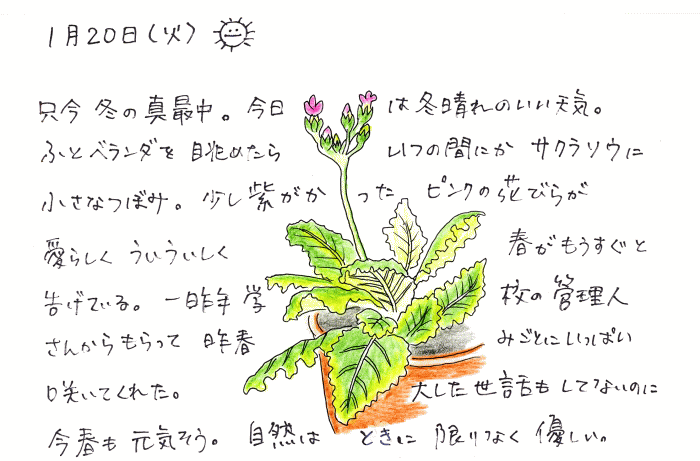 1月20日(火)
只今 冬の真最中。今日は冬晴れのいい天気。
ふとベランダを眺めたら いつの間にか サクラソウに
小さなつぼみ。少し紫がかった ピンクの花びらが
愛らしく ういういしく 春がもうすぐと
告げている。一昨年 学校の管理人
さんからもらって 昨春 みごとにいっぱい
咲いてくれた。大した世話も してないのに
今春も 元気そう。自然は ときに 限りなく 優しい。